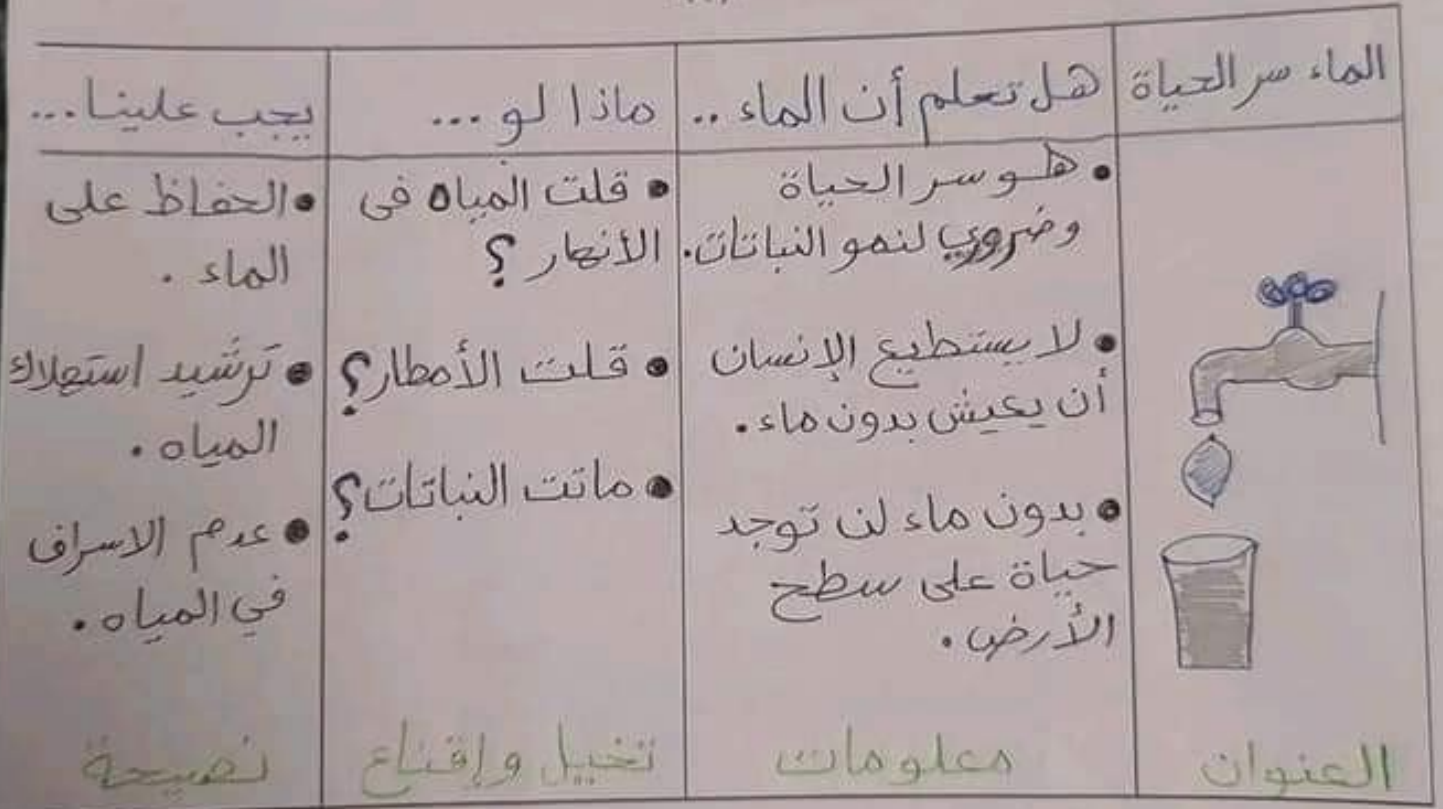 الماء سر الحياة
هل تعلم أن الماء ..
• هو سر الحياة
وضروري لنمو النباتات.
• لا يستطيع الإنسان
أن يعيش بدون ماء.
• بدون ماء لن توجد
حياة على سطح
الأرض.
ماذا لو ...
• قلت المياه فى
الأنهار؟
• قلت الأمطار؟
• ماتت النباتات؟
يجب علينا...
• الحفاظ على
الماء.
• ترشيد استهلاك
المياه.
• عدم الاسراف
في المياه.
العنوان
معلومات
تخيل وإقناع
نصيحة